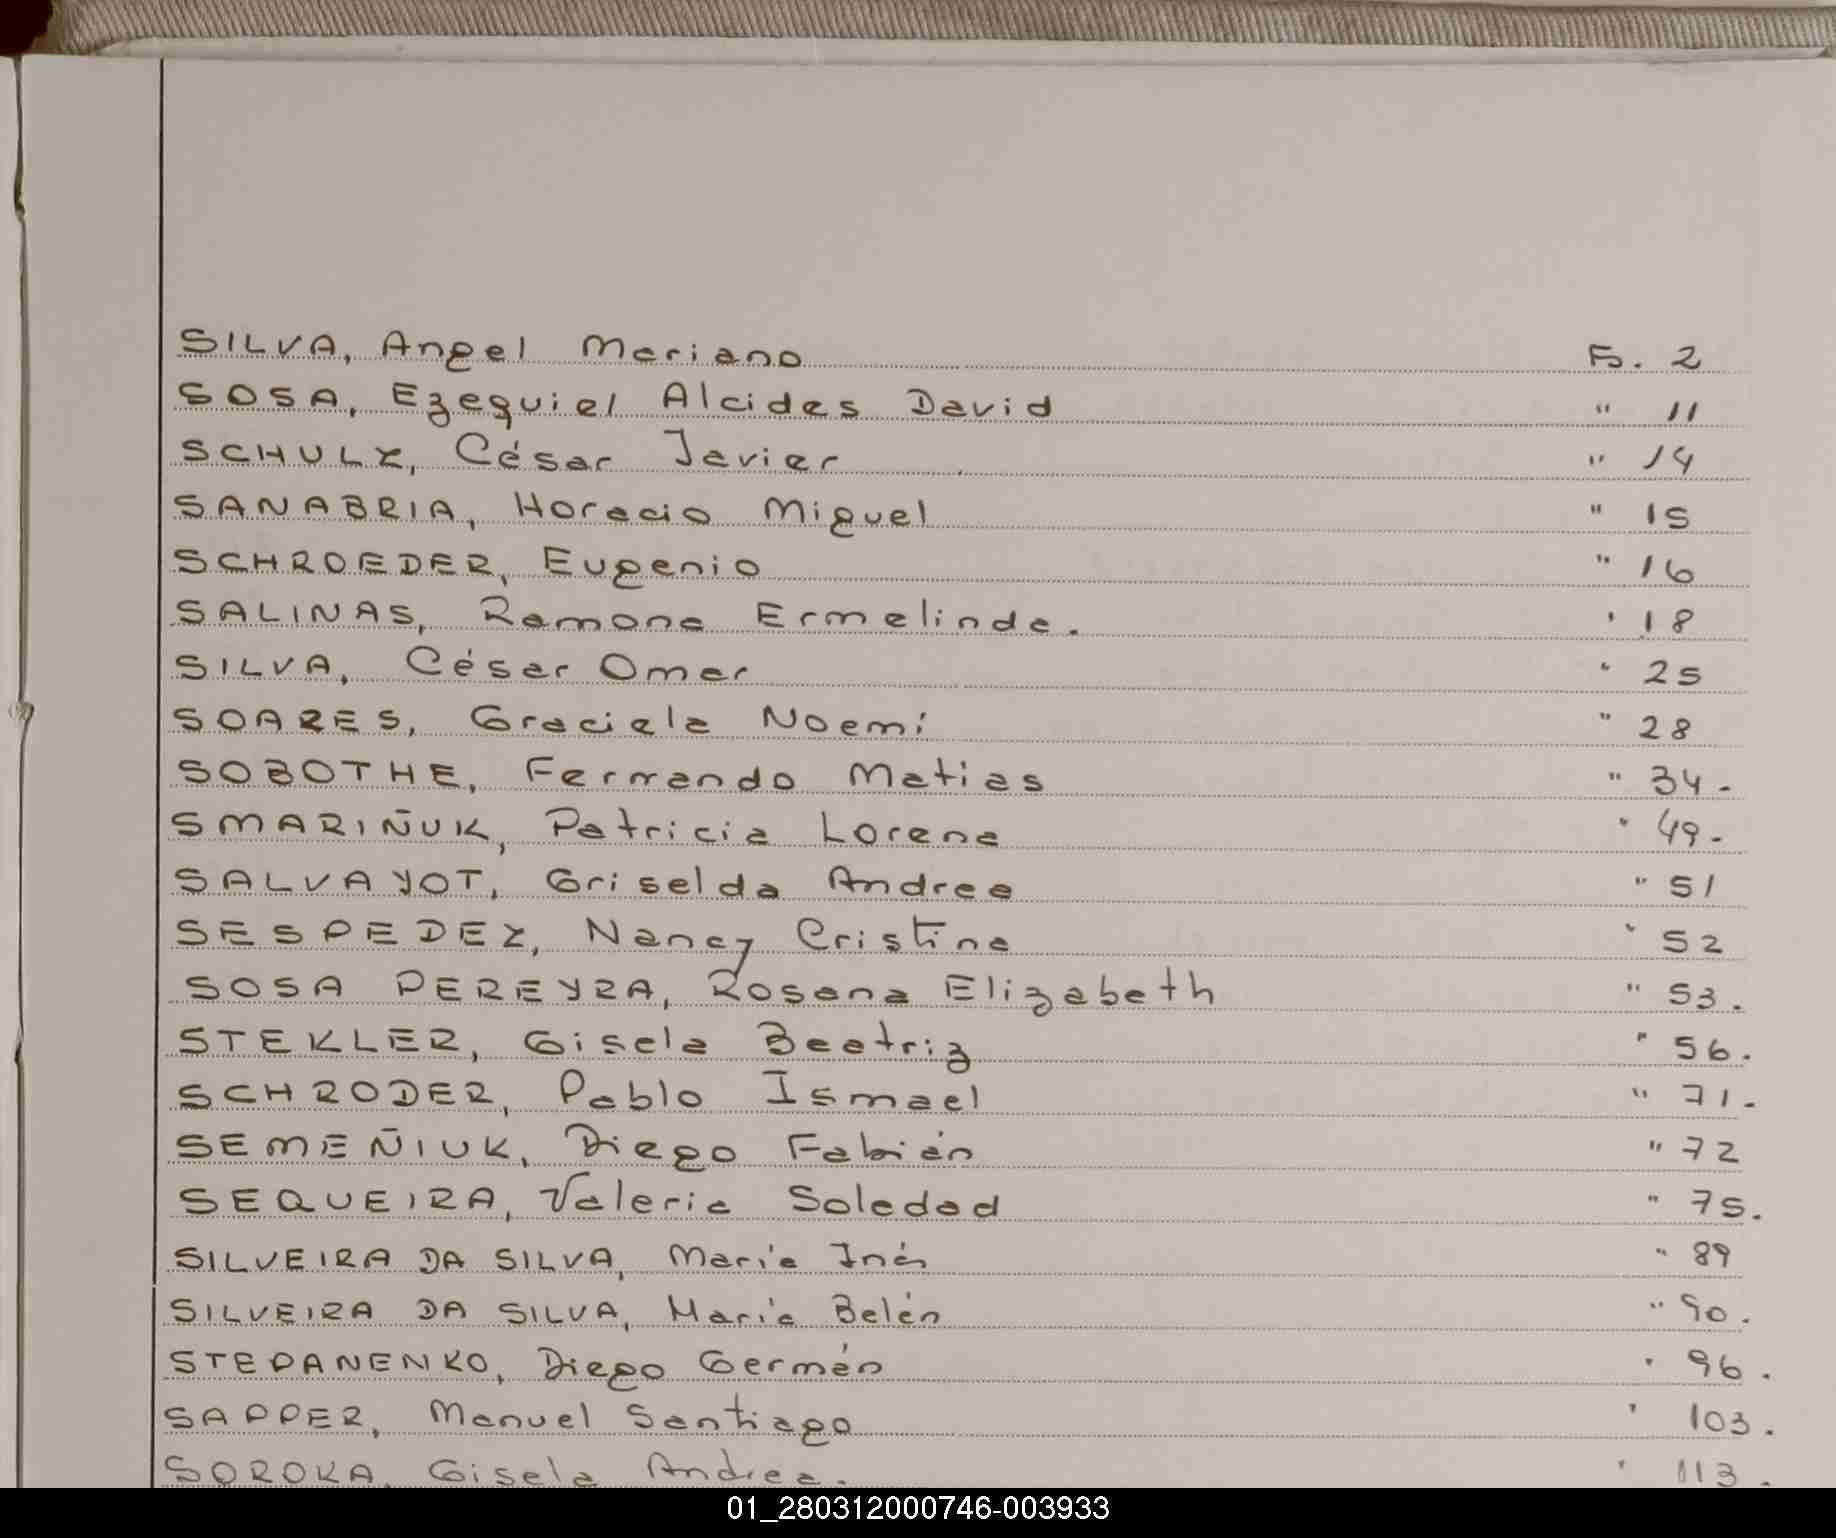 SILVA, Angel Mariano Fo. 2
SOSA, Ezequiel Alcides David " 11
SCHULZ, César Javier " 14
SANABRIA, Horacio Miguel " 15
SCHROEDER, Eugenio " 16
SALINAS, Ramona Ermelinda. " 18
SILVA, César Omar " 25
SOARES, Graciela Noemí " 28
SOBOTHE, Fernando Matias " 34-
SMARIÑUK, Patricia Lorena " 49-
SALVAYOT, Griselda Andrea " 51
SESPEDEZ, Nancy Cristina " 52
SOSA PEREYRA, Rosana Elizabeth " 53.
STEKLER, Gisela Beatriz " 56.
SCHRODER, Pablo Ismael " 71-
SEMEÑIUK, Diego Fabián " 72
SEQUEIRA, Valeria Soledad " 75.
SILVEIRA DA SILVA, María Inés " 89
SILVEIRA DA SILVA, María Belén " 90.
STEPANENKO, Diego Germán " 96.
SAPPER, Manuel Santiago " 103.
SOROKA, Gisela Andrea. " 113.
01_280312000746-003933